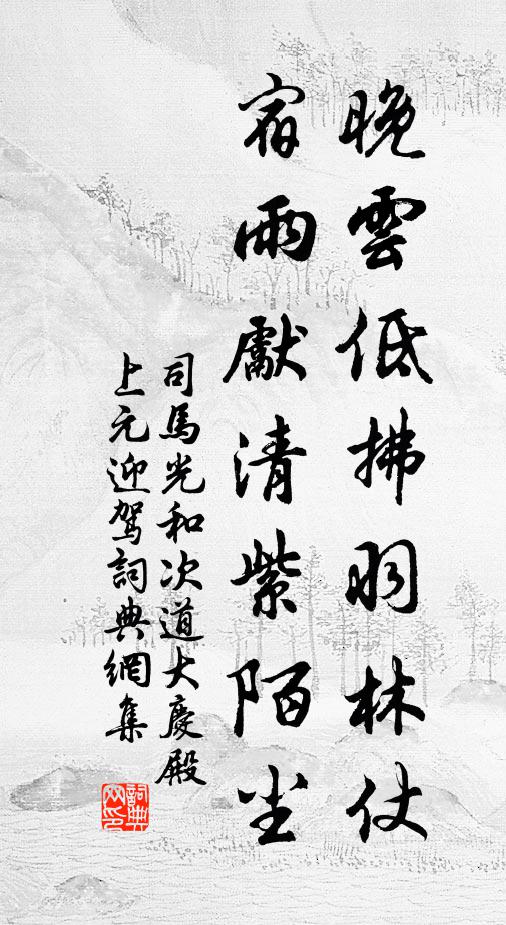 晚雲低拂羽林仗
宿雨獻清紫陌尘
司馬光和次道大慶殿
上元迎駕詞典網集
詞典网印